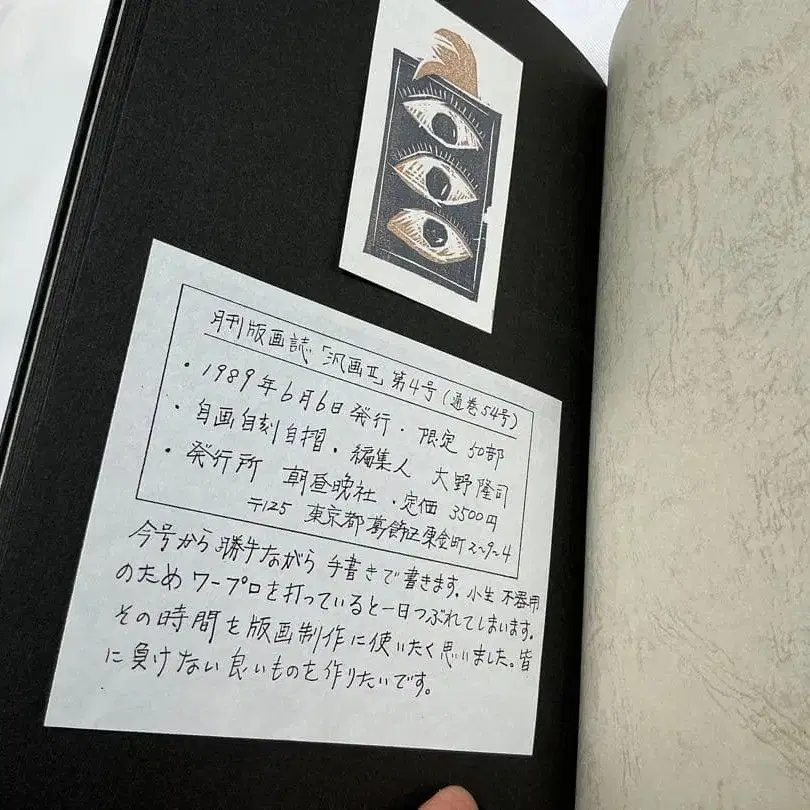 月刊版画誌「汎画Ⅱ」第4号(通巻54号)
・1989年6月6日発行・限定 50部
・自画自刻自摺・編集人 大野隆司
・発行所 朝昼晩社・定価 3500円
〒125 東京都葛飾区東金町2~9~4
今号から勝手ながら 手書きで書きます。小生 不器用
のためワープロを打っていると一日つぶれてしまいます。
その時間を版画制作に使いたく思いました。皆
に負けない良いものを作りたいです。